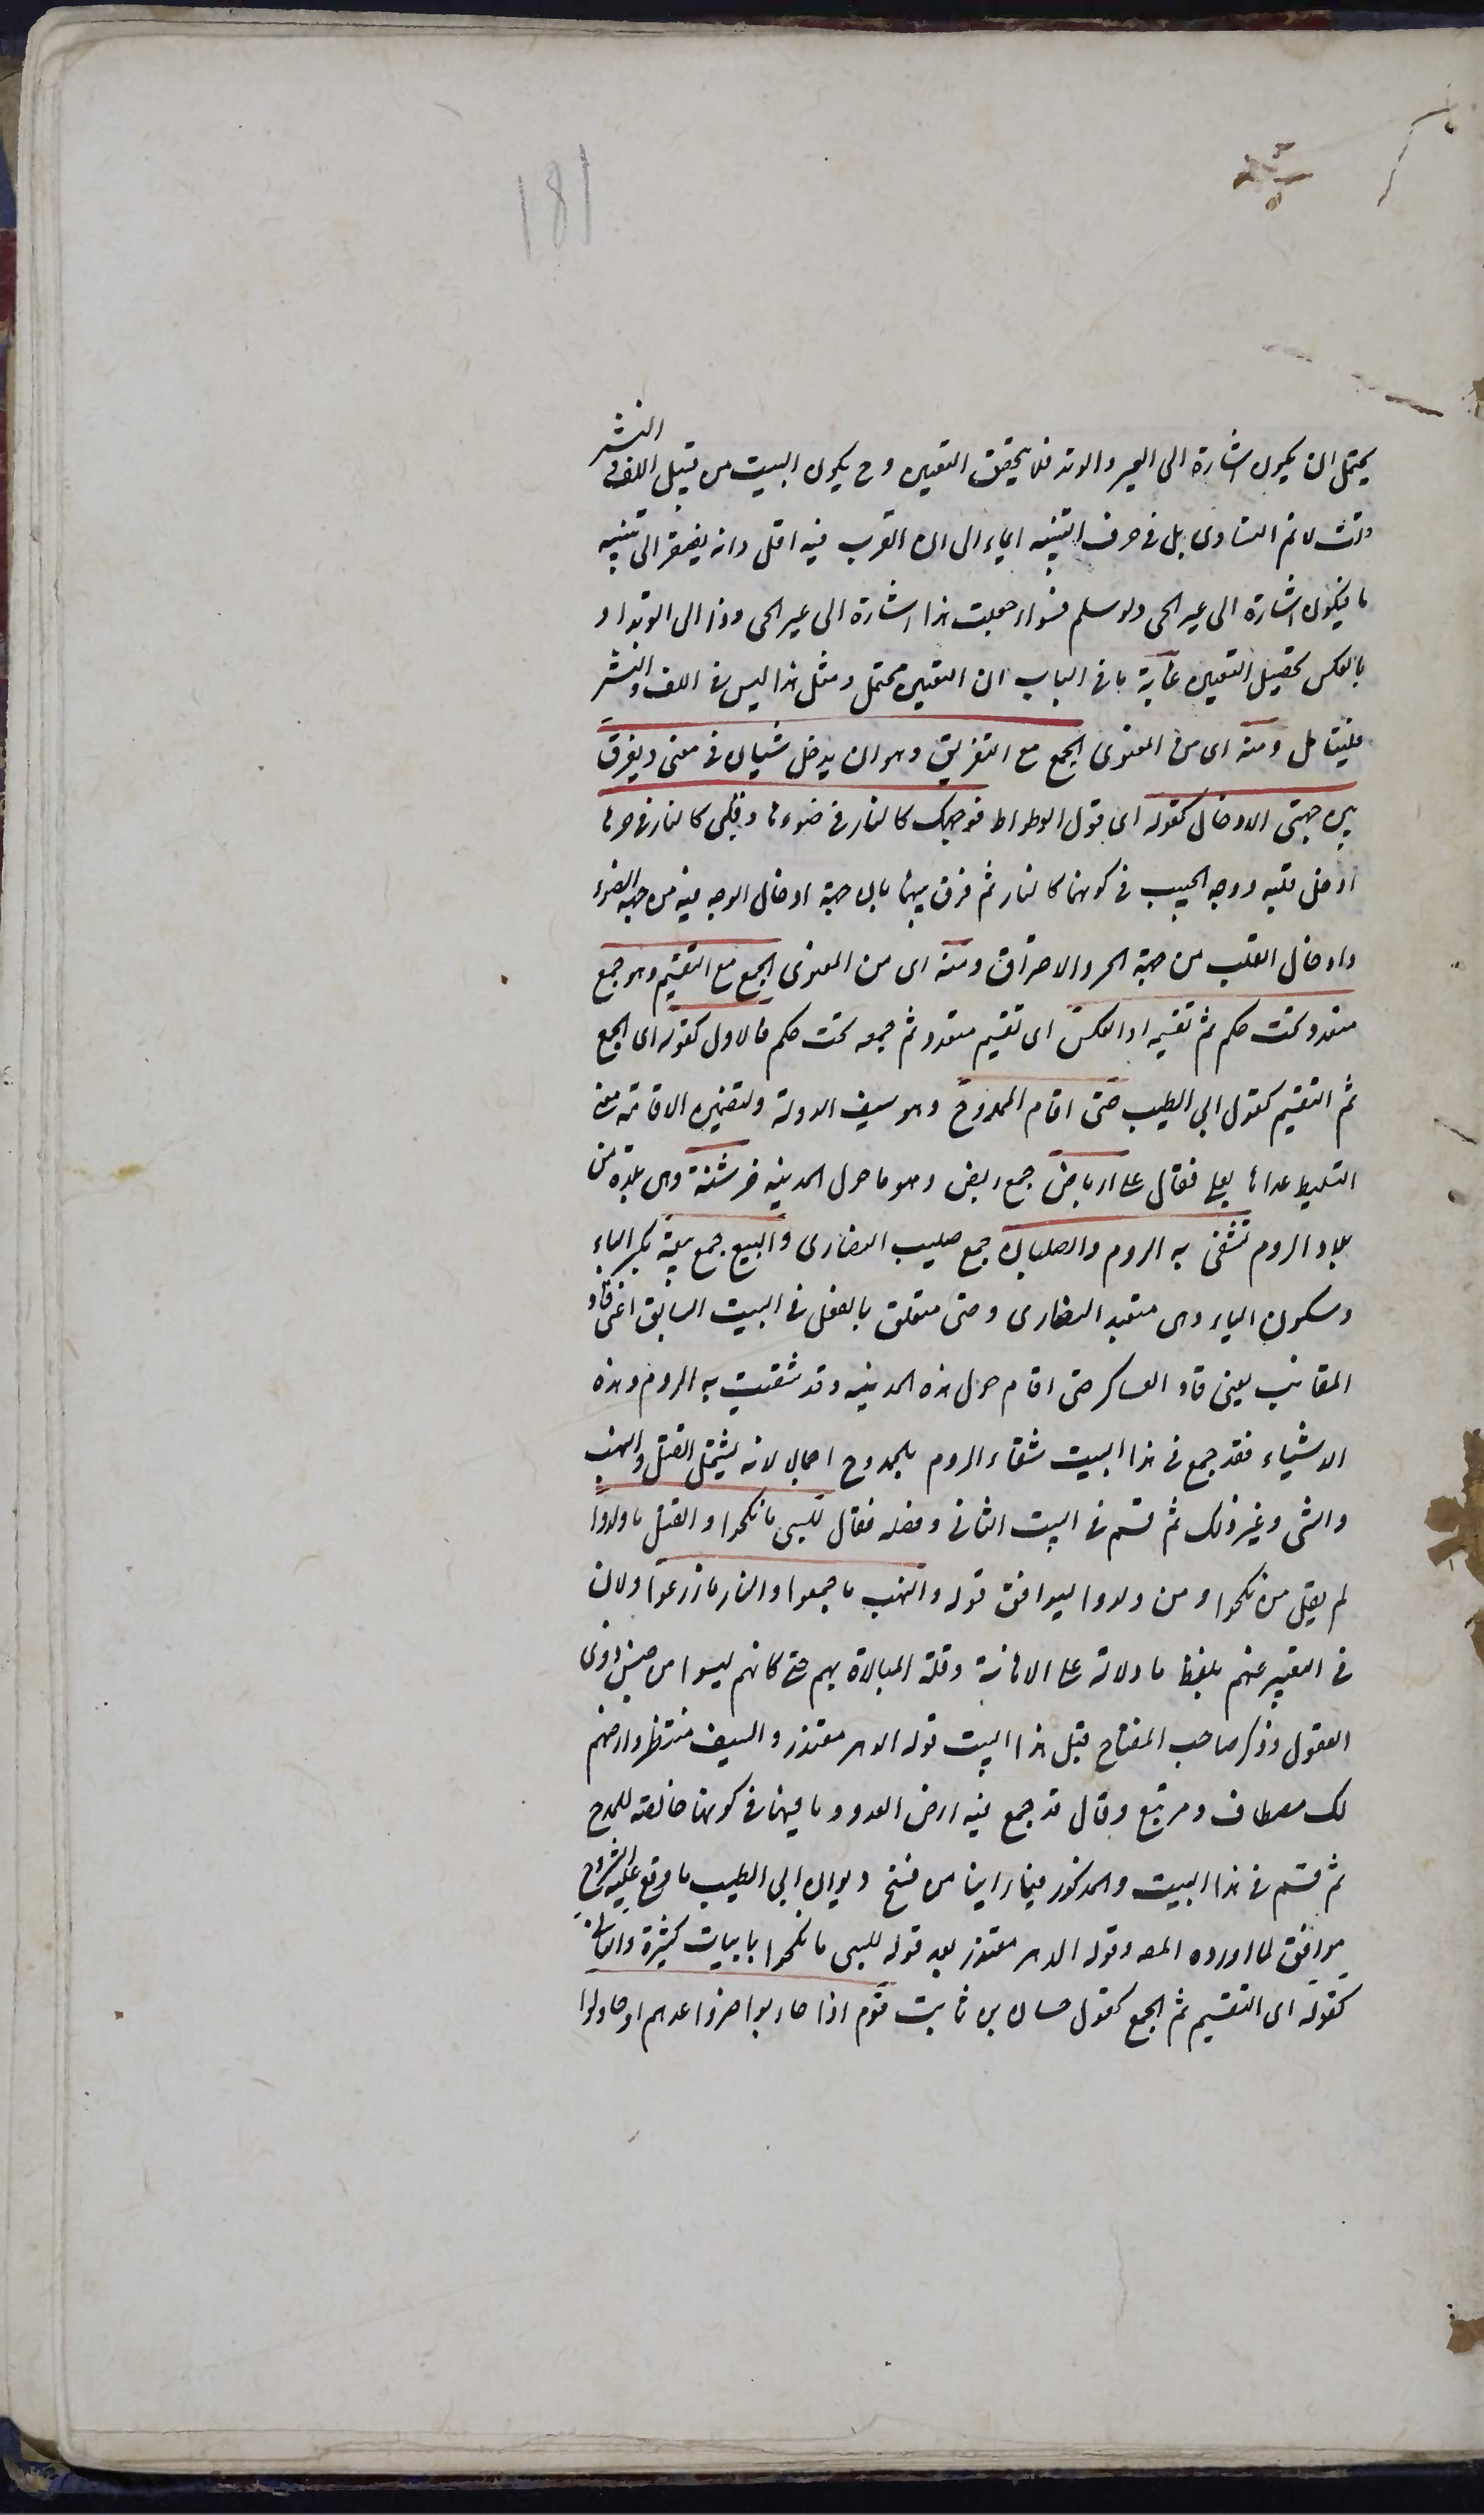 181
يحتمل ان يكون اشارة الى العير والوتد فلا يتحقق التعيين وح يكون البيت من قبيل اللف والنشر
وانت لا نم التساوى بل فى حرف التنبيه ايماء الى ان القرب فيه اقل وانه يفتقر الى تنبيه
ما فيكون اشارة الى عير الحى ولو سلم فسواء جعلت هذا اشارة الى عير الحى وذا الى الوتد او
بالعكس يحصل التعيين غاية ما فى الباب ان التعيين محتمل ومثل هذا ليس فى اللف والنشر
فليتأمل ومنه اى من المعنوى الجمع مع التفريق وهو ان يدخل شيئان فى معنى ويفرق
بين جهتى الادخال كقوله اى قول الوطواط فوجهك كالنار فى ضوءها وقلبى كالنار فى حرها
ادخل قلبه ووجه الحبيب فى كونهما كالنار ثم فرق بينهما بان جهة ادخال الوجه فيه من جهة الضوء
وادخال القلب من جهة الحر والاحتراق ومنه اى من المعنوى الجمع مع التقسيم وهو جمع
متعدد تحت حكم ثم تقسيمه او العكس اى تقسيم متعدد ثم جمعه تحت حكم فالاول كقوله اى الجمع
ثم التقسيم كقول ابي الطيب حتى اقام الممدوح وهو سيف الدولة ولتضمين الاقامة معنى
التسليط عداها بعلى فقال على ارباض جمع ربض وهو ما حول المدينه خرشنة وهى بلدة من
بلاد الروم تشقى به الروم والصلبان جمع صليب النصارى والبيع جمع بيعة بكسر الباء
وسكون الياء وهى متعبد النصارى وحتى متعلق بالفعل فى البيت السابق اعنى قاد
المقانب يعنى قاد العساكر حتى اقام حول هذه المدينه وقد شقيت به الروم وهذه
الاشياء فقد جمع فى هذا البيت شقاء الروم بالممدوح اجمالا لانه يشتمل القتل والنهب
والسبى وغير ذلك ثم قسم فى البيت الثانى وفصله فقال للسبى ما نكحوا والقتل ما ولدوا
لم يقل من نكحوا ومن ولدوا ليوافق قوله والنهب ما جمعوا والنار ما زرعوا ولان
فى التعبير عنهم بلفظ ما دلالة على الاهانة وقلة المبالاة بهم حتى كانهم ليسوا من جنس ذوى
العقول وذكر صاحب المفتاح قبل هذا البيت قوله الدهر معتذر والسيف منتظر وارضهم
لك مصطاف ومرتبع وقال قد جمع فيه ارض العدو وما فيها فى كونها خالصة للممدوح
ثم قسم فى هذا البيت والمذكور فيما راينا من نسخ ديوان ابي الطيب ما وقع عليه الشروح
موافق لما اورده المصه وقوله الدهر معتذر بعد قوله للسبى ما نكحوا بابيات كثيرة والثانى
كقوله اى التقسيم ثم الجمع كقول حسان بن ثابت قوم اذا حاربوا ضروا عدوهم او حاولوا